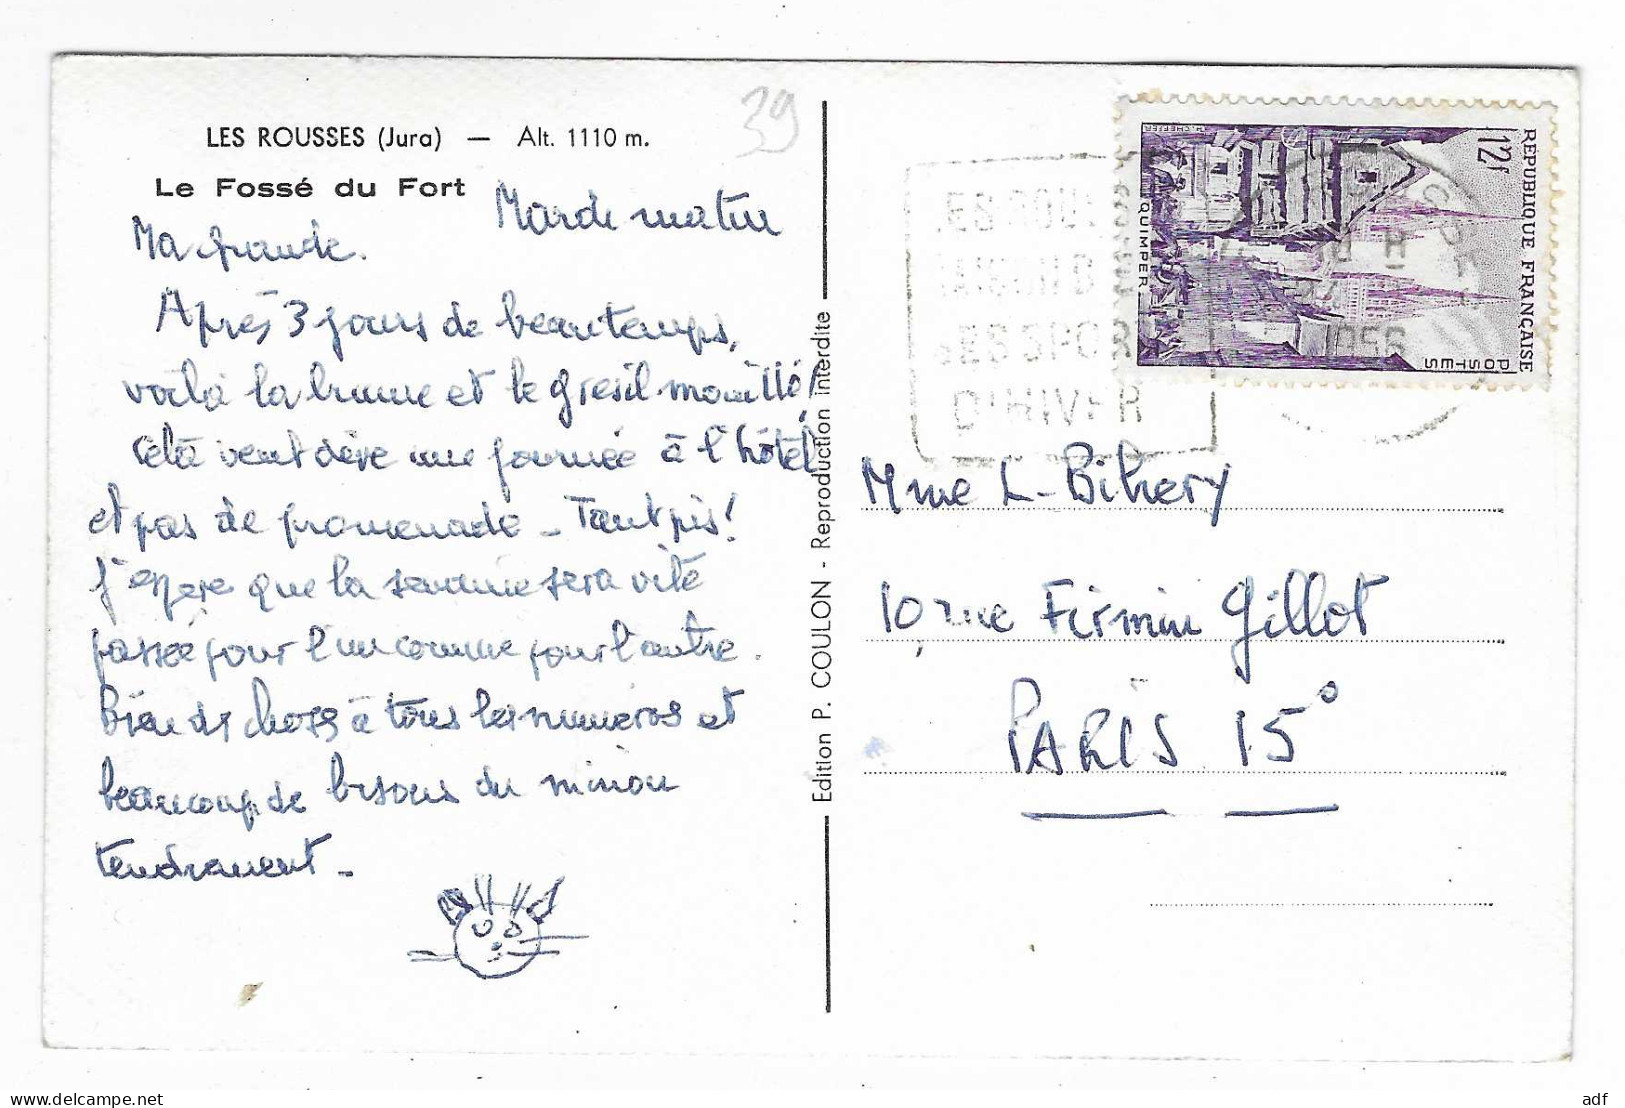 LES ROUSSES (Jura) — Alt. 1110 m.
Le Fossé du Fort
39
Marde matin
Ma grande.
Après 3 jours de beautemps,
voilà la brume et le gresil mouillé!
Cela veut dire une journée à l'hôtel
et pas de promenade - Tant pis!
J'espere que la semaine sera vite
passée pour l'un comme pour l'autre.
Bien ds choses à tous les numeros et
beaucoup de bisous du minou
tendrement -
Edition P. COULON - Reproduction interdite
REPUBLIQUE FRANÇAISE
12f
POSTES
QUIMPER
LES ROUS
SPOR
D'HIVER
H
1956
Mme L. Bihery
10 rue Firmin Gillot
PARIS 15°
delcampe.net
adf